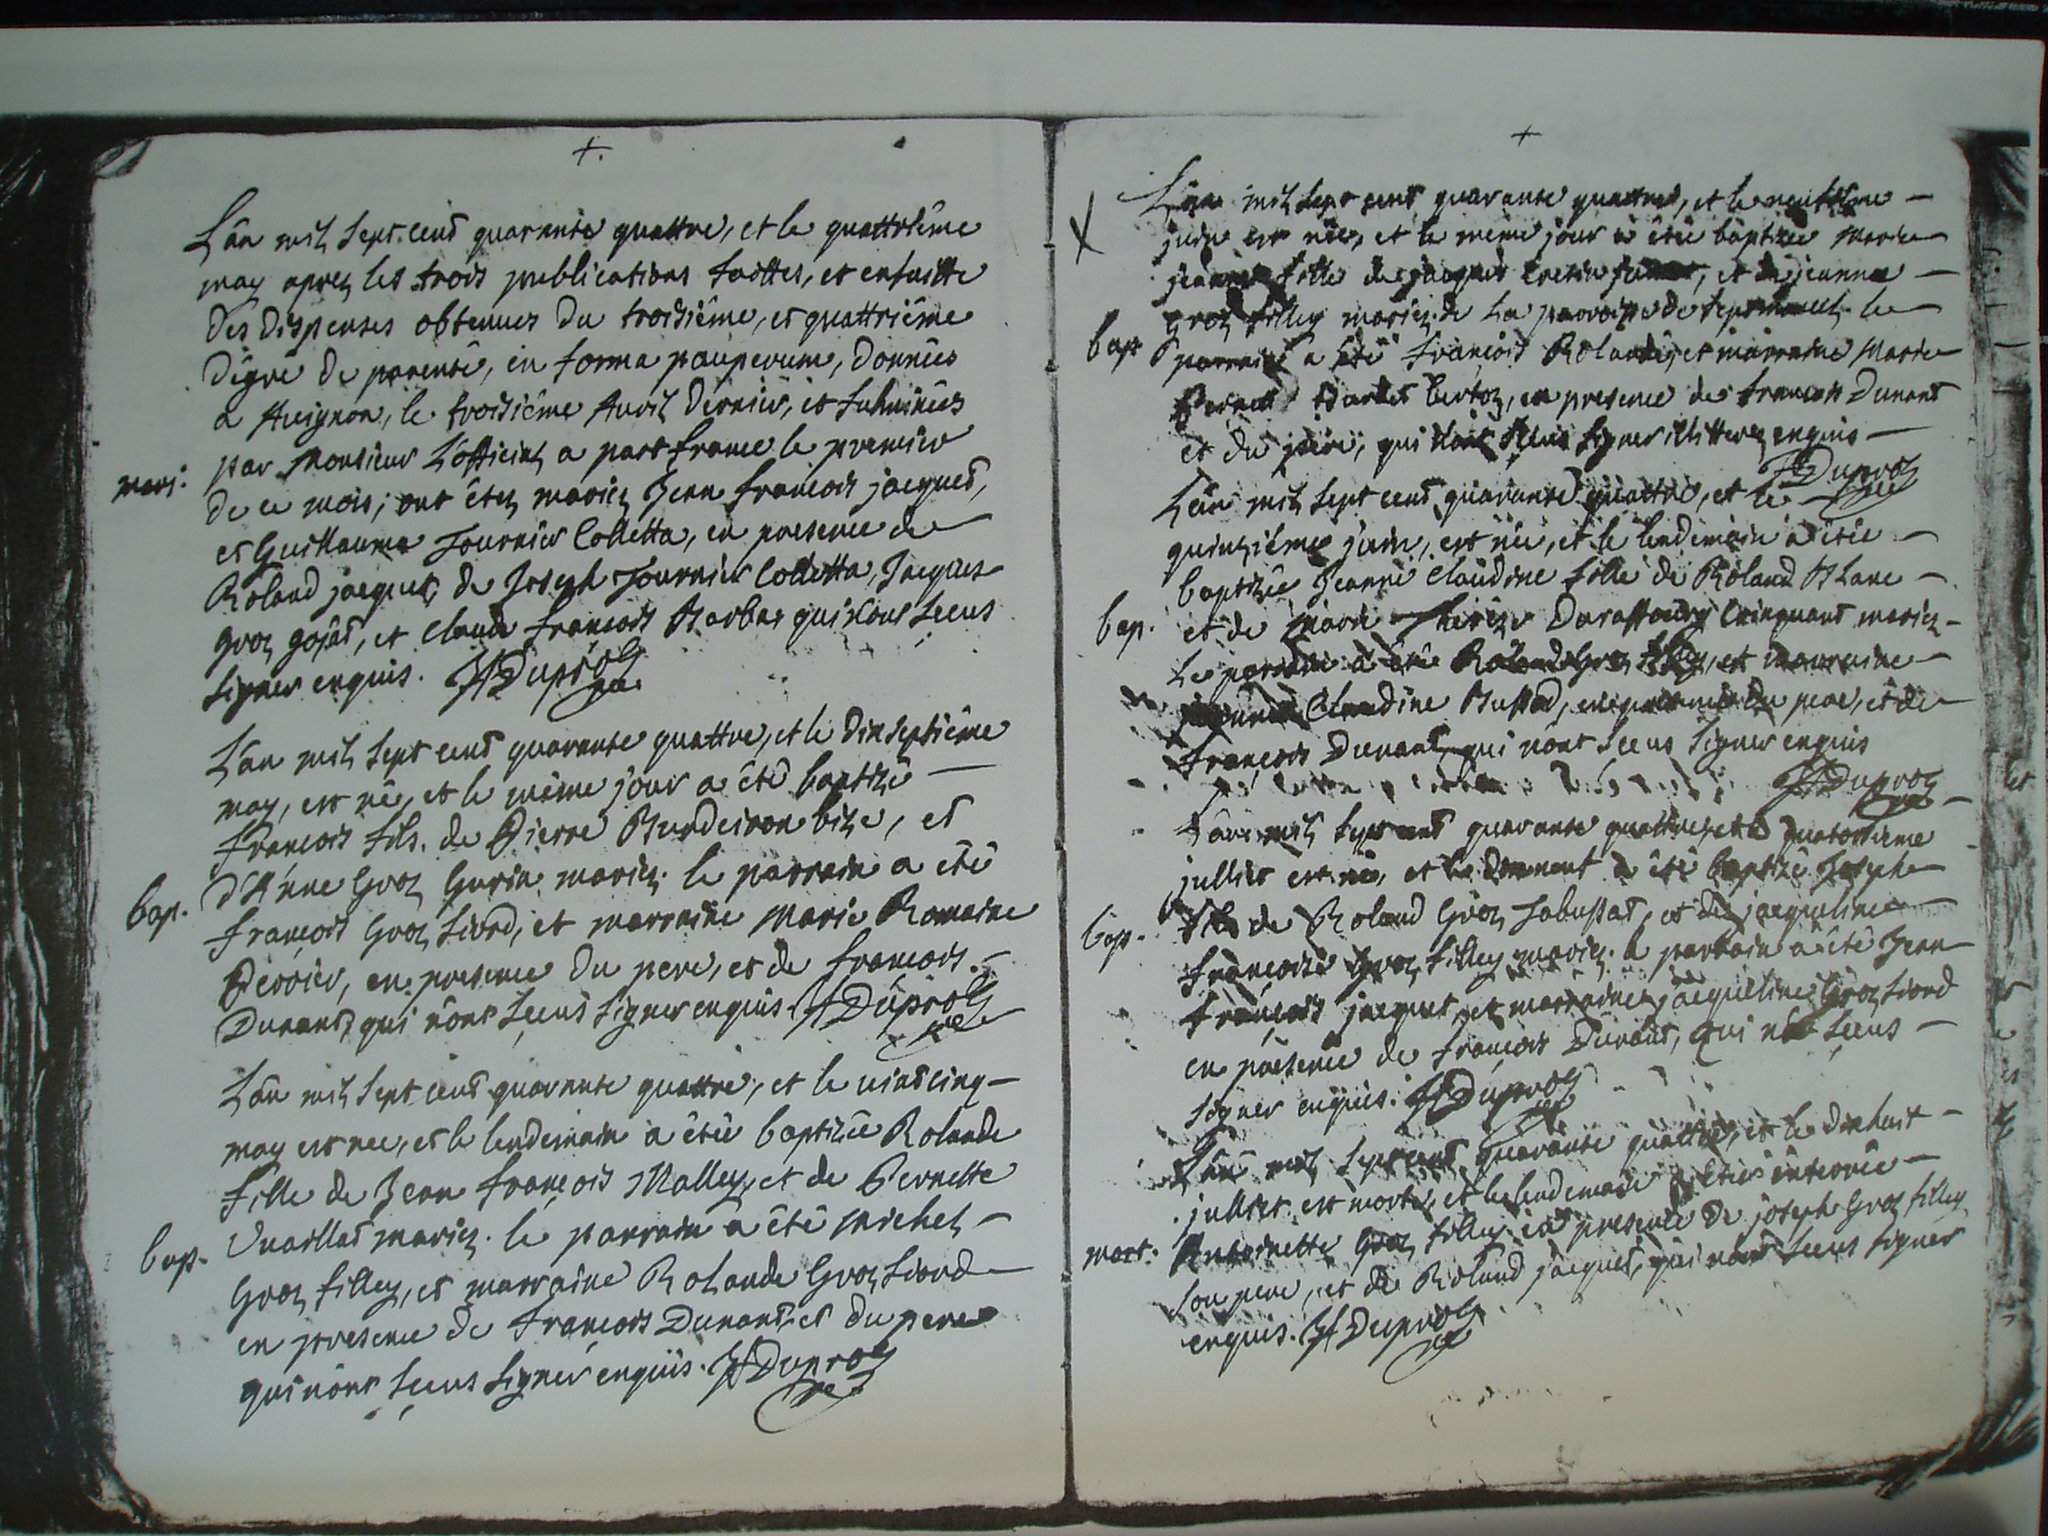 +.
L'an mil sept cent quarante quattre, et le quattriême
may aprez les trois publications faittes, et ensuitte
des dispenses obtenues du troisiême, et quattriême
dêgré de parenté, in forma pauperum, données
a Avignon, le troisiême Avril dernier, et fulminées
par Monsieur L'official a part france le premier
mari. de ce mois; ont êtez mariez Jean françois jacquet,
et Guillauma Fournier Colletta, en presence de
Roland jacquet, de Joseph Fournier Colletta, Jacques
Groz gojat, et Claude françois Barbaz qui n'ont sceus
signer enquis. JfDuproz
L'an mil sept cent quarante quattre, et le dixseptiême
may, est né, et le même jour a êté baptizé
françois fils de Pierre Burdeiron bize, et
bap. d'Anne Groz Gurin mariez. le parrain a êté
françois Groz fiord, et marraine Marie Romaine
Perrier, en presence du pere, et de françois
Dunant, qui n'ont sceus signer enquis. JfDuproz
L'an mil sept cent quarante quattre, et le vint cinq
may est née, et le lendemain a êtée baptizée Rolande
fille de Jean françois Malley, et de Pernette
bap. Vuaillat mariez. le parrain a êté Michel
Groz filley, et marraine Rolande Groz fiord
en presence de françois Dunant, et du pere
qui n'ont sceus signer enquis. JfDuproz
+
X L'an mil sept cent quarante quattre, et le neufiême
juin est née, et le même jour a êtée baptizée Marie
jeanne fille de jacques et de jeanne
Groz filley mariez de La parroisse de septmoncel. le
bap parrain a êté françois Roland, et marraine Marie
en presence de françois Dunant
et du pere, qui n'ont sceus signer illitterez enquis
JfDuproz
L'an mil sept cent quarante quattre, et le
quinziême juin, est née, et le lendemain a êtée
baptizée Jeanne Claudine fille de Roland Blanc
bap. et de Marie Thérèze Duraffourg Cinquant mariez
Le parrain a êté Roland Groz filley, et marraine
Claudine Bussod, en presence du pere, et de
françois Dunant, qui n'ont sceus signer enquis
JfDuproz
L'an mil sept cent quarante quattre, et le quatorsieme
jullier est né, et le a êté baptizé Joseph
bap. fils de Roland Groz Fabussat, et de jacqueline
françoise Groz filley mariez. le parrain a êté Jean
françois jacquet, et marraine jacqueline Groz fiord
en présence de françois Dunant, qui n'a sceus
signer enquis. JfDuproz
L'an mil sept cent quarante quattre, et le dixhuit
jullier est morte, et le lendemain a êtée enterrée
mort. Antoinette Groz filley en presence de joseph Groz filley
son pere, et de Roland jacquet, qui n'ont sceus signer
enquis. JfDuproz